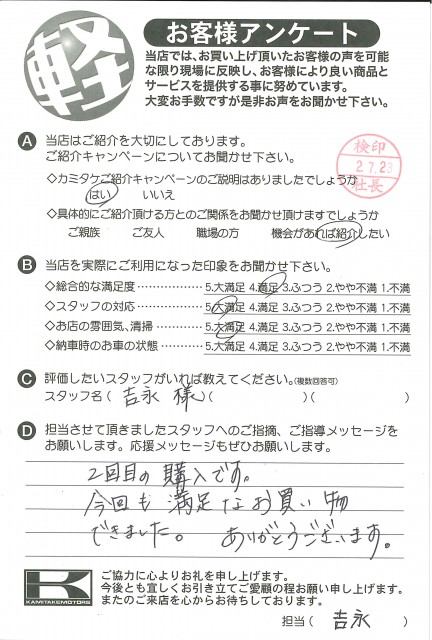 軽
お客様アンケート
当店では、お買い上げ頂いたお客様の声を可能
な限り現場に反映し、お客様により良い商品と
サービスを提供する事に努めています。
大変お手数ですが是非お声をお聞かせ下さい。
A 当店はご紹介を大切にしております。
ご紹介キャンペーンについてお聞かせ下さい。
検印
2.7.23
社長
◇カミタケご紹介キャンペーンのご説明はありましたでしょうか
はい いいえ
◇具体的にご紹介頂ける方とのご関係をお聞かせ頂けますでしょうか
ご親族 ご友人 職場の方 機会があれば紹介したい
B 当店を実際にご利用になった印象をお聞かせ下さい。
◇総合的な満足度 …………… 5.大満足 4.満足 3.ふつう 2.やや不満 1.不満
◇スタッフの対応 …………… 5.大満足 4.満足 3.ふつう 2.やや不満 1.不満
◇お店の雰囲気、清掃 ……… 5.大満足 4.満足 3.ふつう 2.やや不満 1.不満
◇納車時のお車の状態 ……… 5.大満足 4.満足 3.ふつう 2.やや不満 1.不満
C 評価したいスタッフがいれば教えてください。(複数回答可)
スタッフ名 ( 吉永 様 ) ( ) ( )
D 担当させて頂きましたスタッフへのご指摘、ご指導メッセージを
お願いします。応援メッセージもぜひお願いします。
2回目の購入です。
今回も満足なお買い物
できました。 ありがとうございます。
K
KAMITAKEMOTORS
ご協力に心よりお礼を申し上げます。
今後とも宜しくお引き立てご愛顧の程お願い申し上げます。
またのご来店を心からお待ちしております。
担当 ( 吉永 )